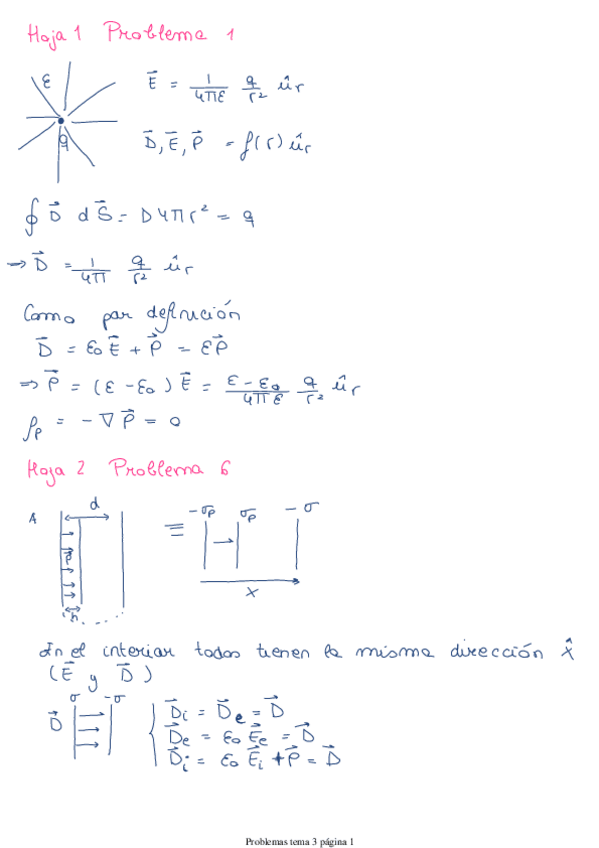 Hoja 1 Problema 1
ε
q
E⃗ = 1/4πε q/r² ûr
D⃗, E⃗, P⃗ = f(r) ûr
∮ D⃗ dS⃗ = D4πr² = q
→ D⃗ = 1/4π q/r² ûr
Como por definición
D⃗ = ε0 E⃗ + P⃗ = εP⃗
⇒ P⃗ = (ε - ε0) E⃗ = ε - ε0/4πε q/r² ûr
ρp = - ∇ P⃗ = 0
Hoja 2 Problema 6
A d ≡ -σp σp -σ
h x
En el interior todos tienen la misma dirección x̂
(E⃗ y D⃗)
σ -σ
D⃗
D⃗i = D⃗e = D⃗
D⃗e = ε0 E⃗e = D⃗
D⃗i = ε0 E⃗i + P⃗ = D⃗
Problemas tema 3 página 1